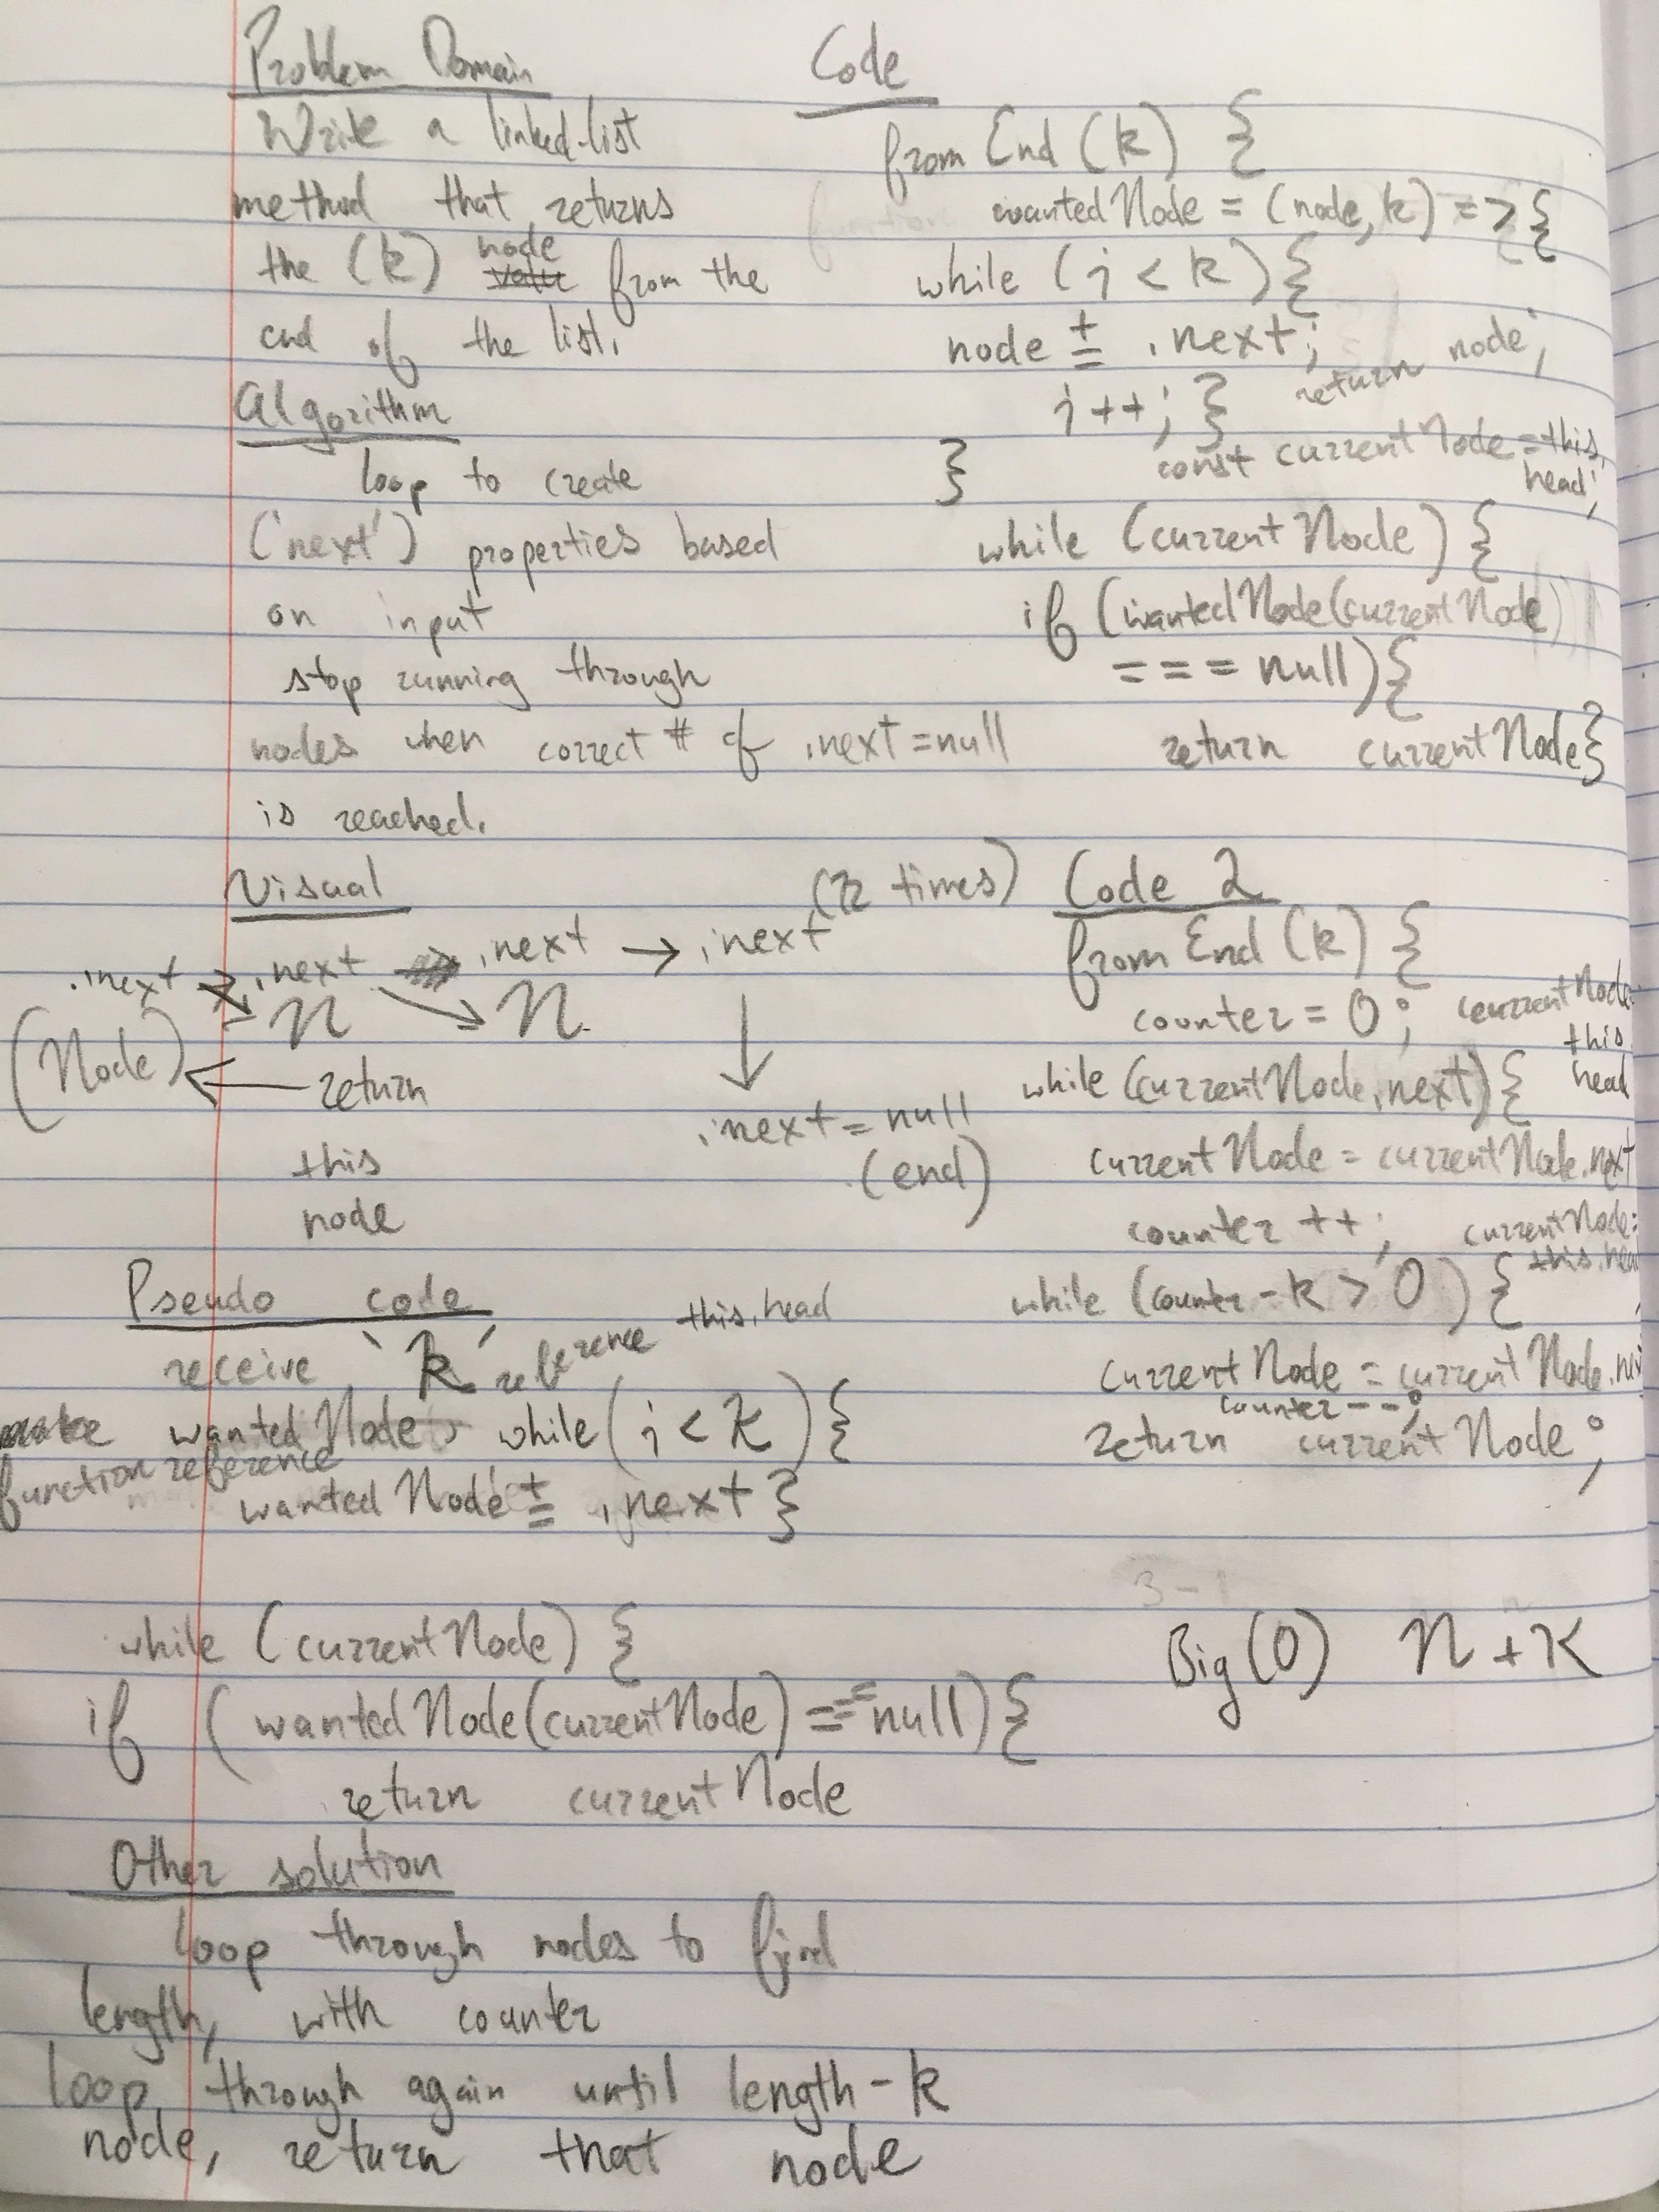 Problem Domain
Write a linked-list
method that returns
the (k) node from the
end of the list.
Algorithm
loop to create
('next') properties based
on input
stop running through
nodes when correct # of .next = null
is reached.
Visual
.next → .next → .next → .next (k times)
(Node) n n
← return
this
node
.next = null
(end)
Pseudo code
receive 'k' reference this.head
wantedNode while (i < k) {
function reference
wantedNode += .next }
while (currentNode) {
if (wantedNode(currentNode) === null) {
return currentNode
Other solution
loop through nodes to find
length, with counter
loop through again until length - k
node, return that node
Code
fromEnd (k) {
wantedNode = (node, k) => {
while (i < k) {
node += .next;
i++; } return node;
} const currentNode = this.
head;
while (currentNode) {
if (wantedNode(currentNode)
=== null) {
return currentNode}
Code 2
fromEnd (k) {
counter = 0; currentNode
this.
head
while (currentNode.next) {
currentNode = currentNode.next
counter ++; currentNode =
this.head
while (counter - k > 0) {
currentNode = currentNode.ne
counter --;
return currentNode;
3 - 1
Big (O) n + k